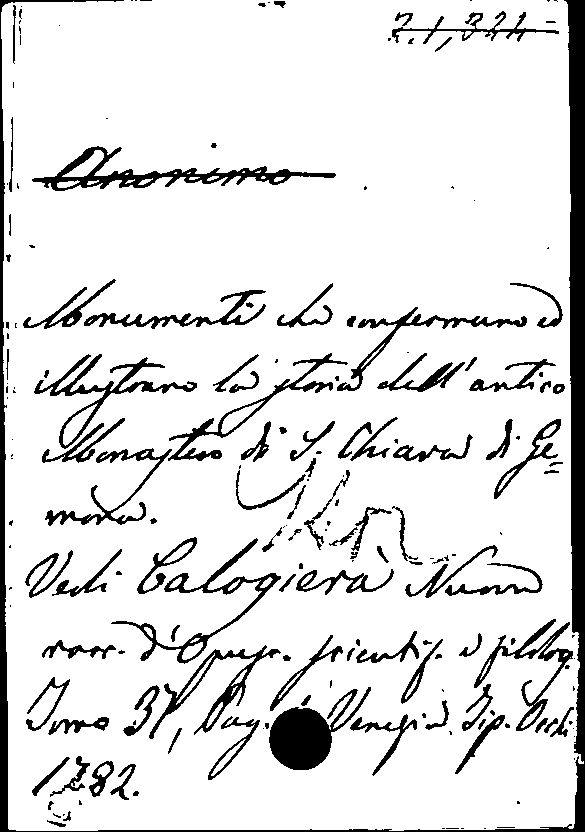 2.1,324
Anonimo
Monumenti che confermano ed
illustrano la storia dell' antico
Monastero di S. Chiara di Ge=
mona.
Vedi Calogierà Nuova
racc. d'Opusc. scientif. e filolog.
Tomo 37, Pag. Venezia. Tip. Occhi
1782.